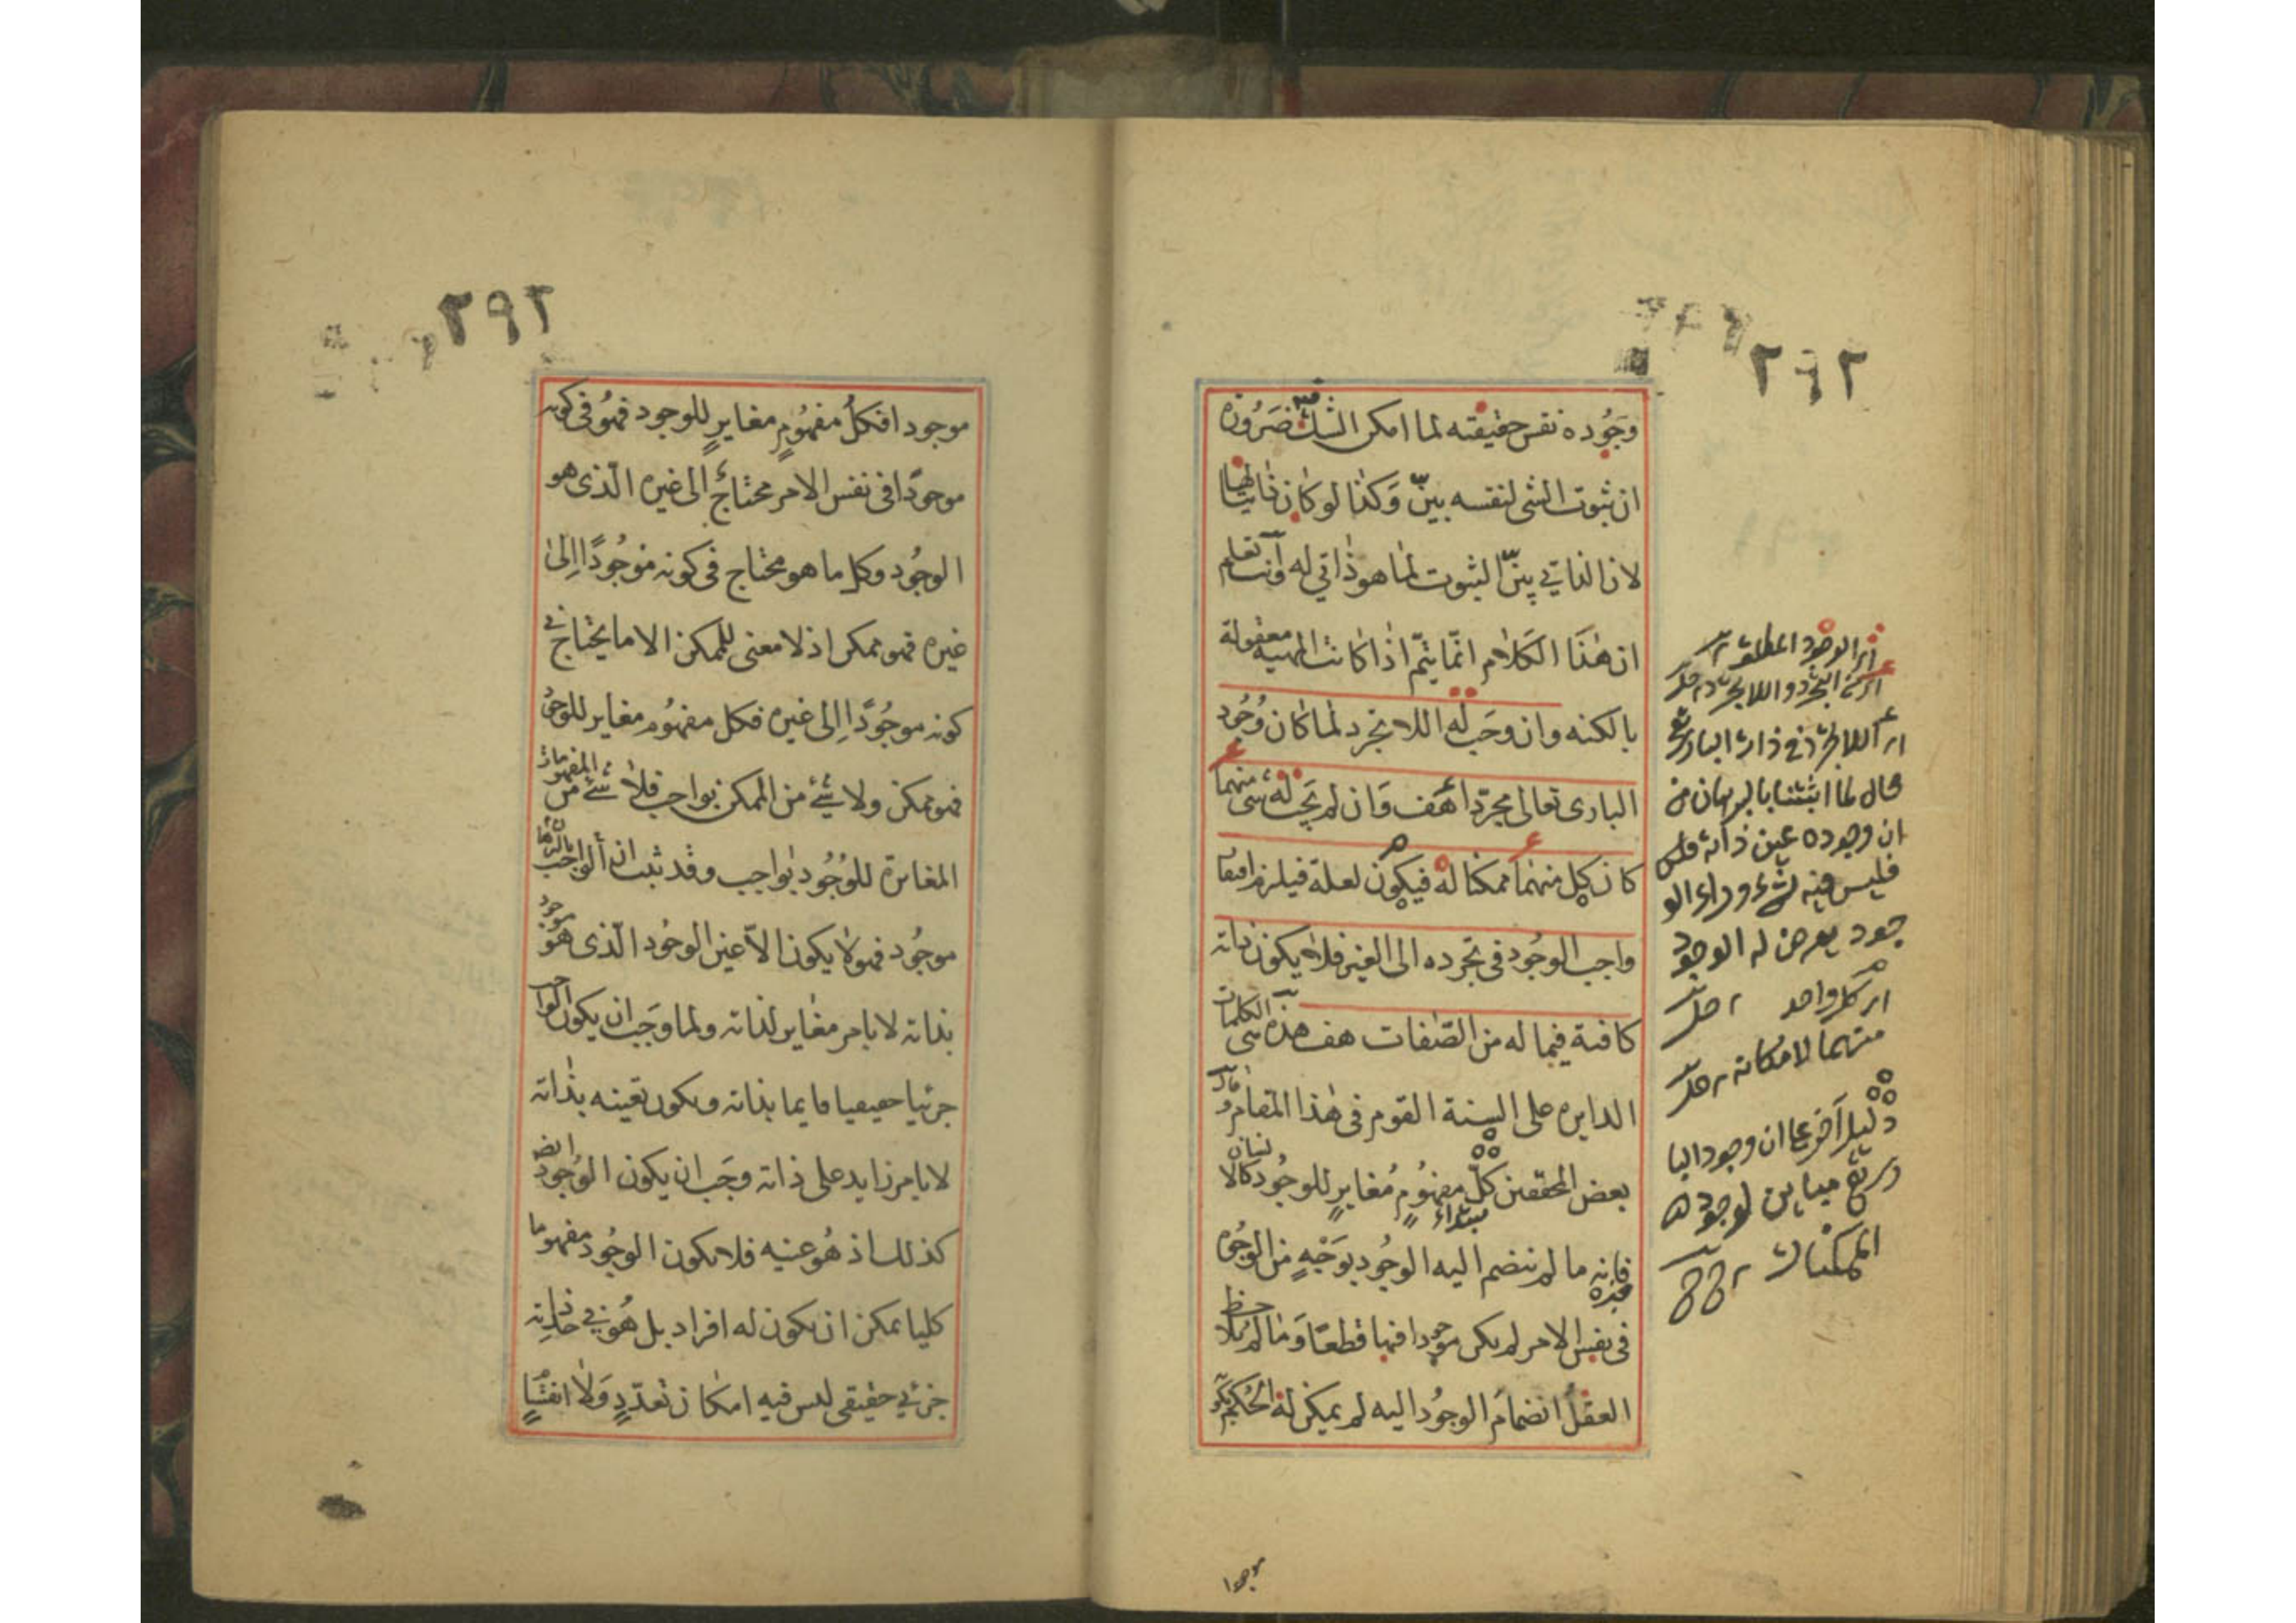 ٢٩٢
وجوده نفس حقيقته لما امكن الشك فيه ضرورة
ان ثبوت الشى لنفسه بين وكذا لو كان ذاتيا لها
لان الذاتي بين الثبوت لما هو ذاتي له وانت تعلم
ان هذا الكلام انما يتم اذا كانت المهية معقولة
بالكنه وان وجب له اللا تجرد لما كان وجود
البارى تعالى مجردا هف وان لم يجب له شى منهما
كان كل منهما ممكنا له فيكون لعلة فيلزم افتقار
واجب الوجود فى تجرده الى الغير فلا يكون ذاته
كافية فيما له من الصفات هف هذه هى الكلمات
الدايرة على السنة القوم فى هذا المقام وقال
بعض المحققين كل مفهوم مغاير للوجود كالانسان
مبتداء
فانه ما لم ينضم اليه الوجود بوجه من الوجوه
خبره
فى نفس الامر لم يكن موجودا فيها قطعا وما لم يلاحظ
العقل انضمام الوجود اليه لم يمكن له الحكم بكونه
اى الوجود المطلق
اى من التجرد واللا تجرد
اى اللا تجرد فى ذات البارى تع
محال لما اثبتنا بالبرهان من
ان وجوده عين ذاته
فليس فيه شئ وراء الو
جود يعرض له الوجود
اى كل واحد
منهما لامكانه
دليل آخر على ان وجود البا
رى تع مباين لوجود
الممكنات
موجودا
٢٩٢
موجودا فكل مفهوم مغاير للوجود فهو فى كونه
موجودا فى نفس الامر محتاج الى غيره الذى هو
الوجود وكل ما هو محتاج فى كونه موجودا الى
غيره فهو ممكن اذ لا معنى للممكن الا ما يحتاج فى
كونه موجودا الى غيره فكل مفهوم مغاير للوجود
فهو ممكن ولا شئ من الممكن بواجب فلا شئ من المفهومات
المغايرة للوجود بواجب وقد ثبت بالبرهان ان الواجب
موجود فهو لا يكون الا عين الوجود الذى هو موجود
بذاته لا بامر مغاير لذاته ولما وجب ان يكون الواجب
جزئيا حقيقيا قايما بذاته ويكون تعينه بذاته
لا بامر زايد على ذاته وجب ان يكون الوجود ايضا
كذلك اذ هو عينه فلا يكون الوجود مفهوما
كليا يمكن ان يكون له افراد بل هو فى حد ذاته
جزئي حقيقى ليس فيه امكان تعدد ولا انقسام